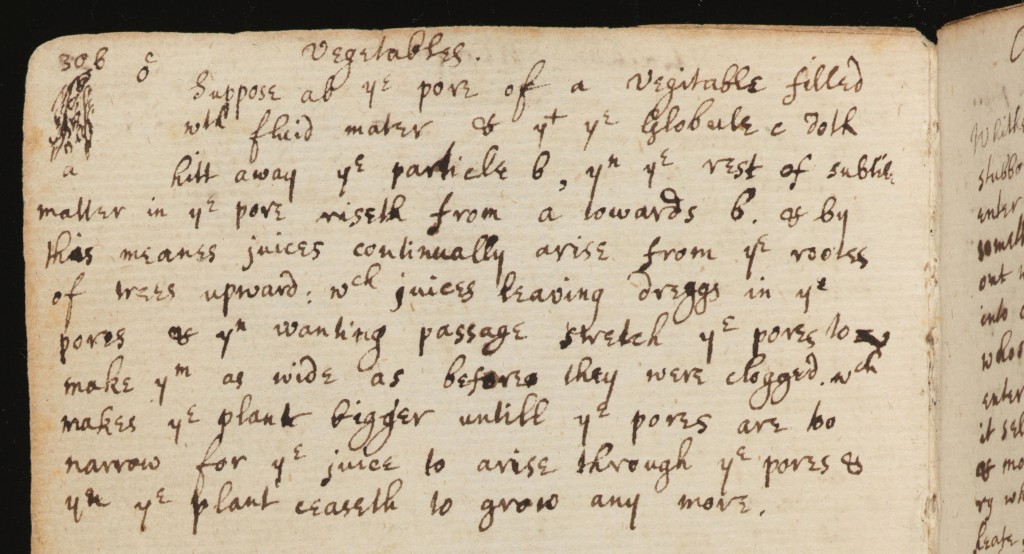 306 c Vegetables.
Suppose ab yᵉ pore of a Vegitable filled
wᵗʰ fluid mater & yᵗ yᵉ Globule c doth
a hitt away yᵉ particle b, yⁿ yᵉ rest of subtile
matter in yᵉ pore riseth from a towards b. & by
this meanes juices continually arise from yᵉ rootes
of trees upward: wᶜʰ juices leaving dreggs in yᵉ
pores & yⁿ wanting passage stretch yᵉ pores to
make yᵐ as wide as before they were clogged. wᶜʰ
makes yᵉ plant bigger untill yᵉ pores are too
narrow for yᵉ juice to arise through yᵉ pores &
yⁿ yᵉ plant ceaseth to grow any more.
enter
out
into
whos
enter
it sel